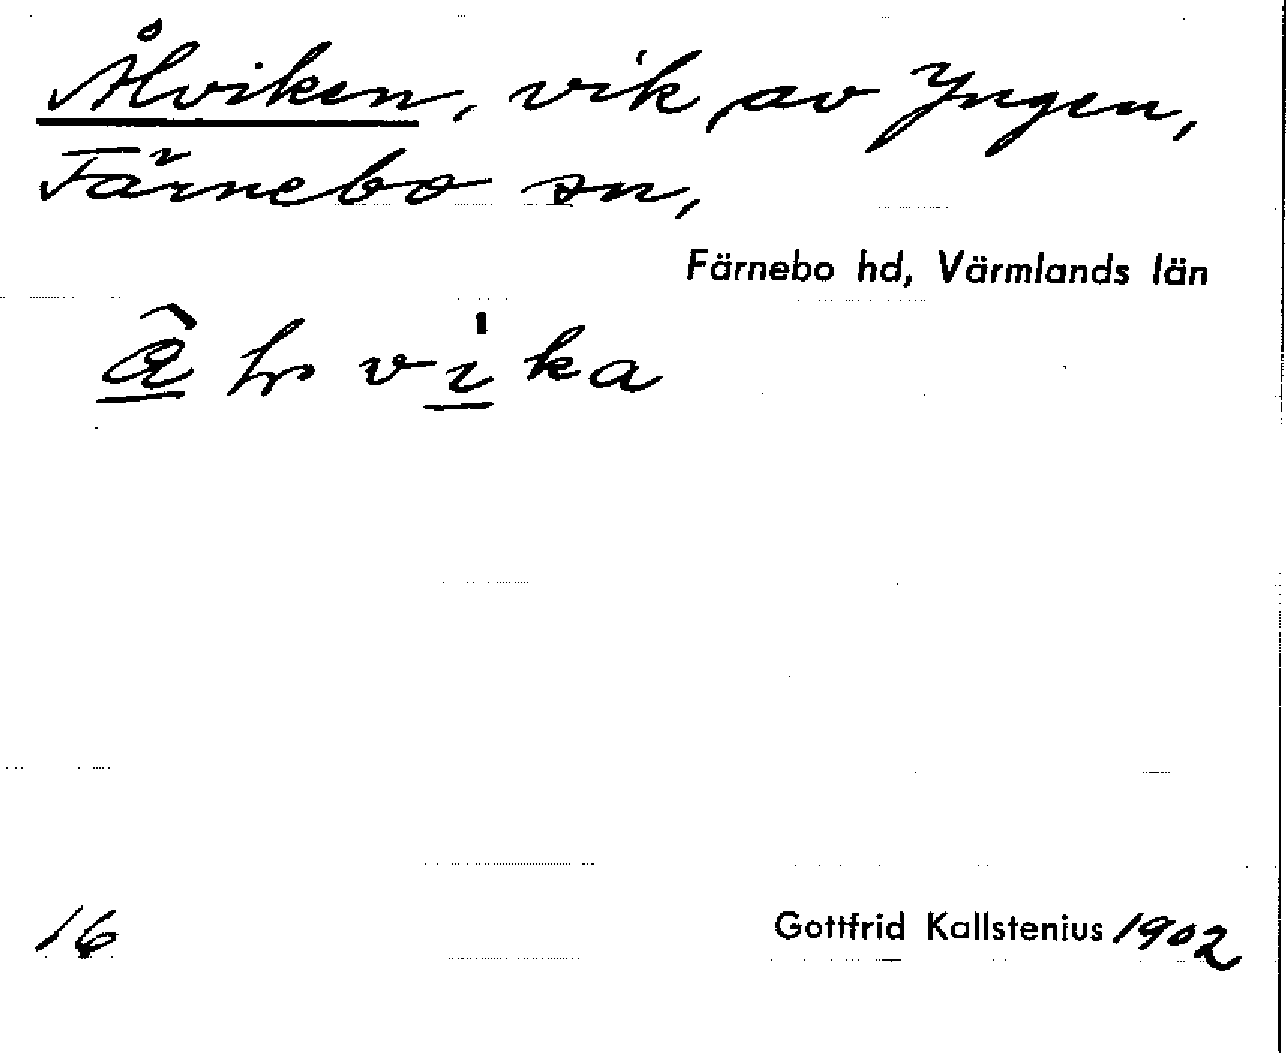 Ålviken, vik av Yngen,
Färnebo sn,
Färnebo hd, Värmlands län
vika
16
Gottfrid Kallstenius 1902